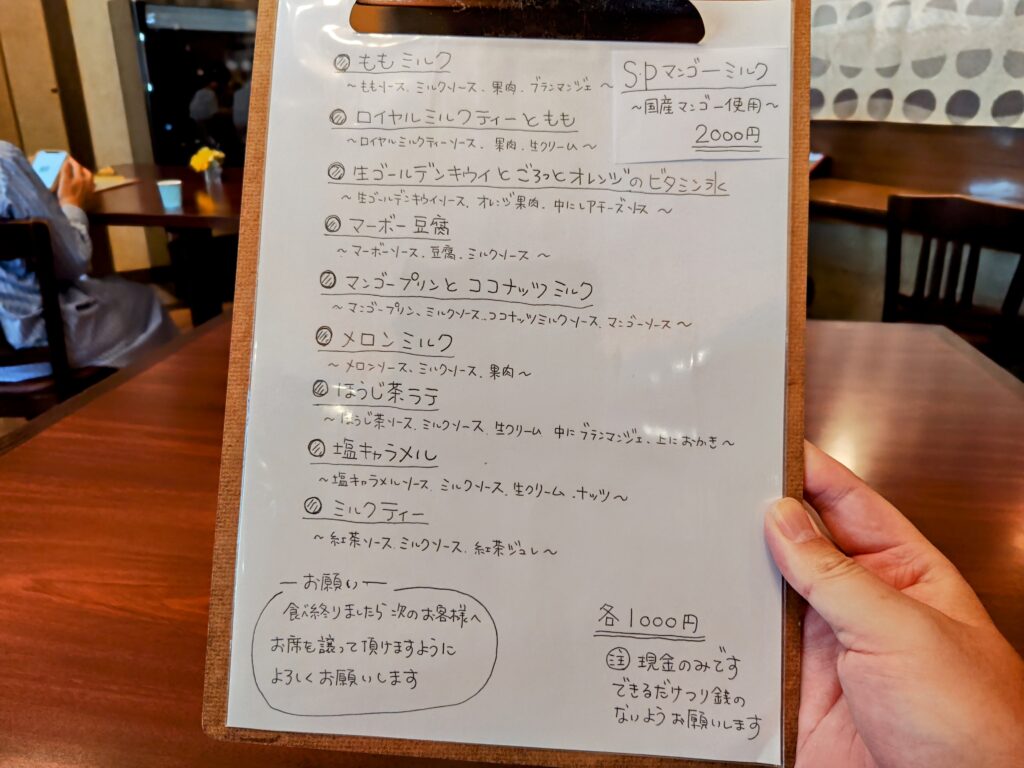 ももミルク
～ももソース、ミルクソース、果肉、ブランマンジェ～
S.Pマンゴーミルク
～国産マンゴー使用～
2000円
ロイヤルミルクティーともも
～ロイヤルミルクティーソース、果肉、生クリーム～
生ゴールデンキウイとごろっとオレンジのビタミン氷
～生ゴールデンキウイソース、オレンジ果肉、中にレアチーズソース～
マーボー豆腐
～マーボーソース、豆腐、ミルクソース～
マンゴープリンとココナッツミルク
～マンゴープリン、ミルクソース、ココナッツミルクソース、マンゴーソース～
メロンミルク
～メロンソース、ミルクソース、果肉～
ほうじ茶ラテ
～ほうじ茶ソース、ミルクソース、生クリーム 中にブランマンジェ、上におかき～
塩キャラメル
～塩キャラメルソース、ミルクソース、生クリーム、ナッツ～
ミルクティー
～紅茶ソース、ミルクソース、紅茶ジュレ～
お願い
食べ終りましたら次のお客様へ
お席を譲って頂けますように
よろしくお願いします
各1000円
注 現金のみです
できるだけつり銭の
ないようお願いします